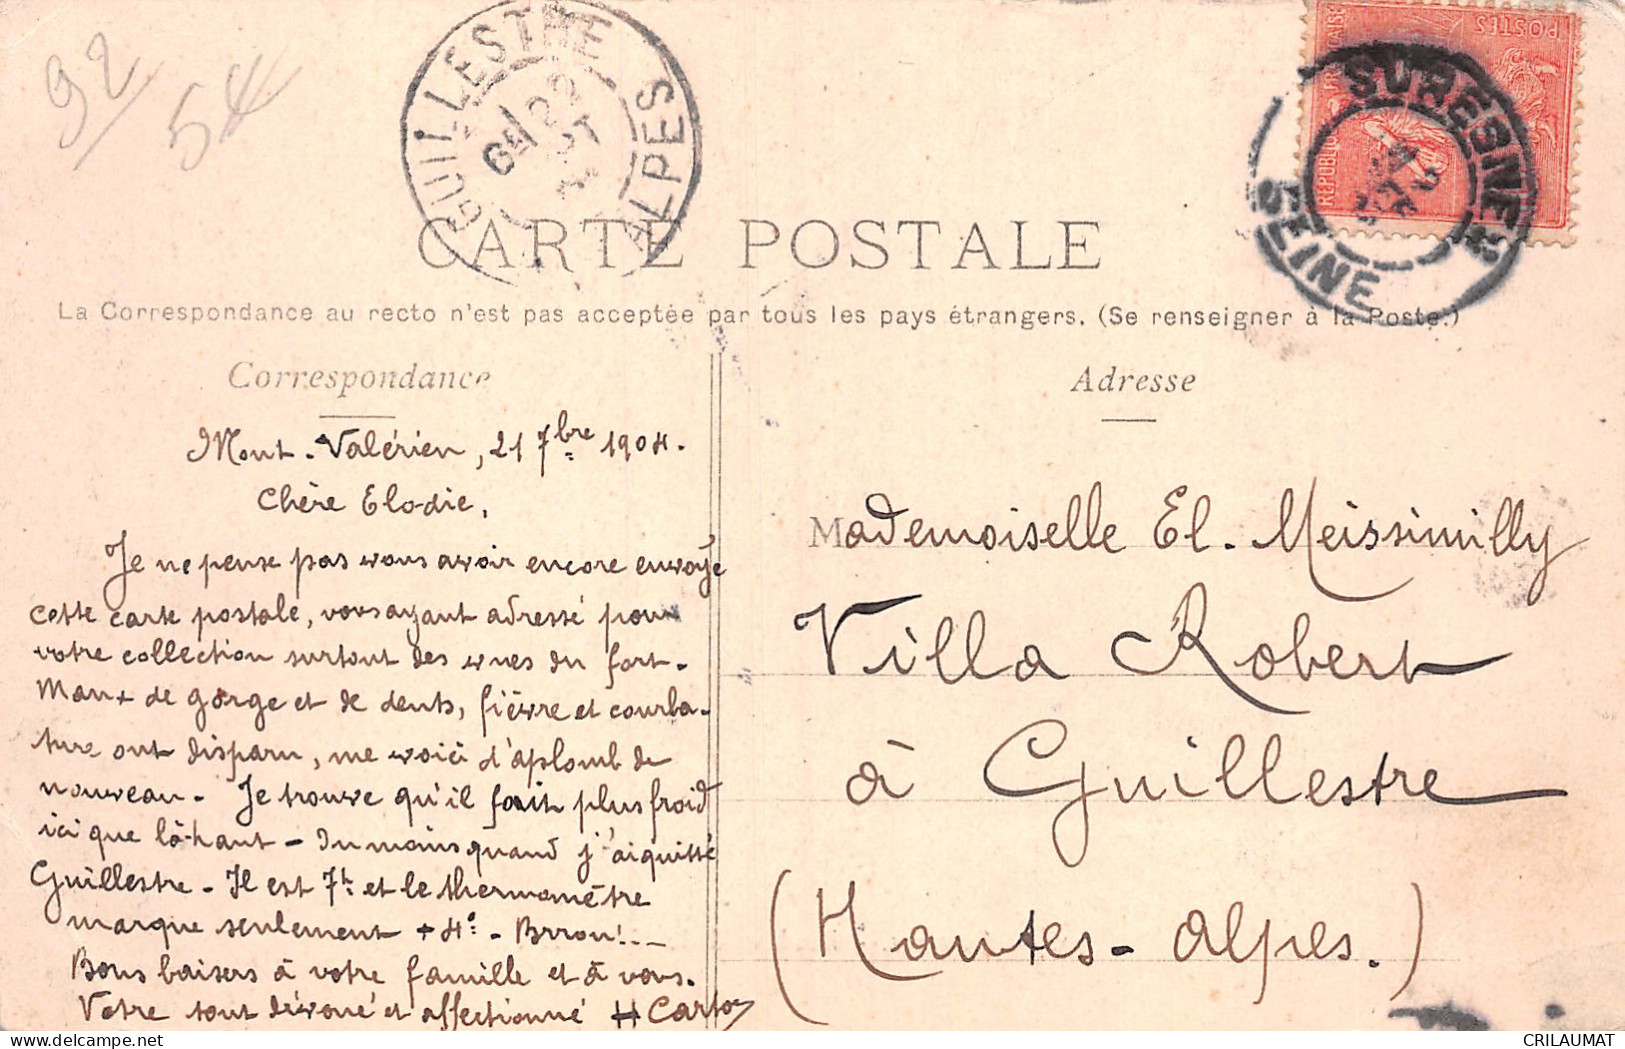 92
54
GUILLESTRE
22
ALPES
REPUBLIQUE FRANÇAISE
POSTES
SURESNES
SEINE
CARTE POSTALE
La Correspondance au recto n'est pas acceptée par tous les pays étrangers. (Se renseigner à la Poste.)
Correspondance
Adresse
Mont-Valérien, 21 7bre 1904.
Chère Elodie,
Je ne pense pas vous avoir encore envoyé
cette carte postale, vous ayant adressé pour
votre collection surtout des vues du fort.
Maux de gorge et de dents, fièvre et courba-
ture ont disparu, me voici d'aplomb de
nouveau. Je trouve qu'il fait plus froid
ici que là-haut - Du moins quand j'ai quitté
Guillestre - Il est 7h et le thermomètre
marque seulement + 4° - Brrou!...
Bons baisers à votre famille et à vous.
Votre tout dévoué et affectionné H Cartoy
Mademoiselle El. Meissimilly
Villa Robert
à Guillestre
(Hautes-Alpes.)
CRILAUMAT